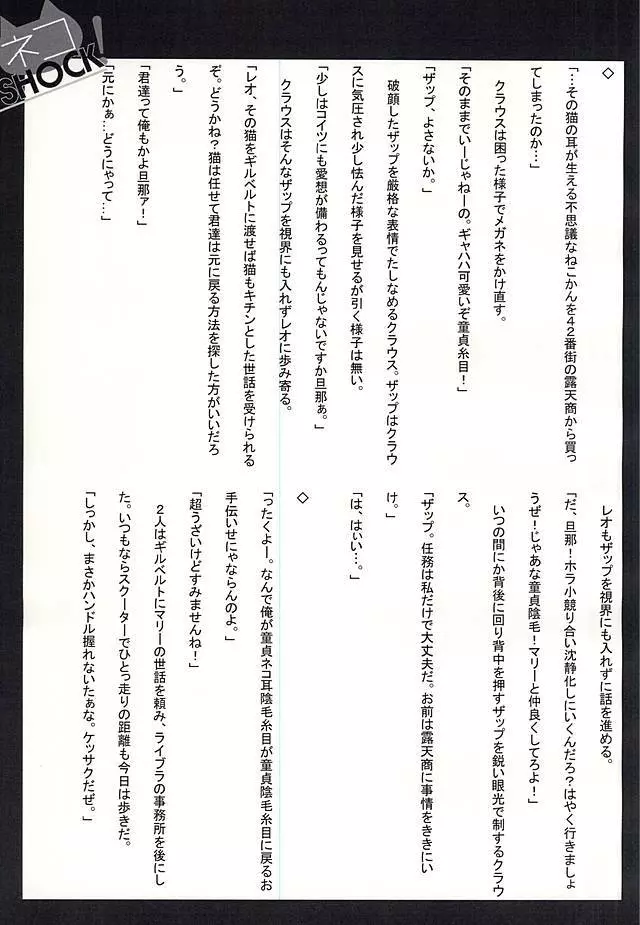 ネコ
SHOCK!
◇
「…その猫の耳が生える不思議なねこかんを４２番街の露天商から買っ
てしまったのか…」
クラウスは困った様子でメガネをかけ直す。
「そのままでいーじゃねーの。ギャハハ可愛いぞ童貞糸目！」
「ザップ、よさないか。」
破顔したザップを厳格な表情でたしなめるクラウス。ザップはクラウ
スに気圧され少し怯んだ様子を見せるが引く様子は無い。
「少しはコイツにも愛想が備わるってもんじゃないですか旦那ぁ。」
クラウスはそんなザップを視界にも入れずレオに歩み寄る。
「レオ、その猫をギルベルトに渡せば猫もキチンとした世話を受けられる
ぞ。どうかね？猫は任せて君達は元に戻る方法を探した方がいいだろ
う。」
「君達って俺もかよ旦那ァ！」
「元にかぁ…どうにゃって…」
レオもザップを視界にも入れずに話を進める。
「だ、旦那！ホラ小競り合い沈静化しにいくんだろ？はやく行きましょ
うぜ！じゃあな童貞陰毛！マリーと仲良くしてろよ！」
いつの間にか背後に回り背中を押すザップを鋭い眼光で制するクラウ
ス。
「ザップ。任務は私だけで大丈夫だ。お前は露天商に事情をききにい
け。」
「は、はぃい…。」
◇
「ったくよー。なんで俺が童貞ネコ耳陰毛糸目が童貞陰毛糸目に戻るお
手伝いせにゃならんのよ。」
「超うざいけどすみませんね！」
２人はギルベルトにマリーの世話を頼み、ライブラの事務所を後にし
た。いつもならスクーターでひとっ走りの距離も今日は歩きだ。
「しっかし、まさかハンドル握れないたぁな。ケッサクだぜ。」